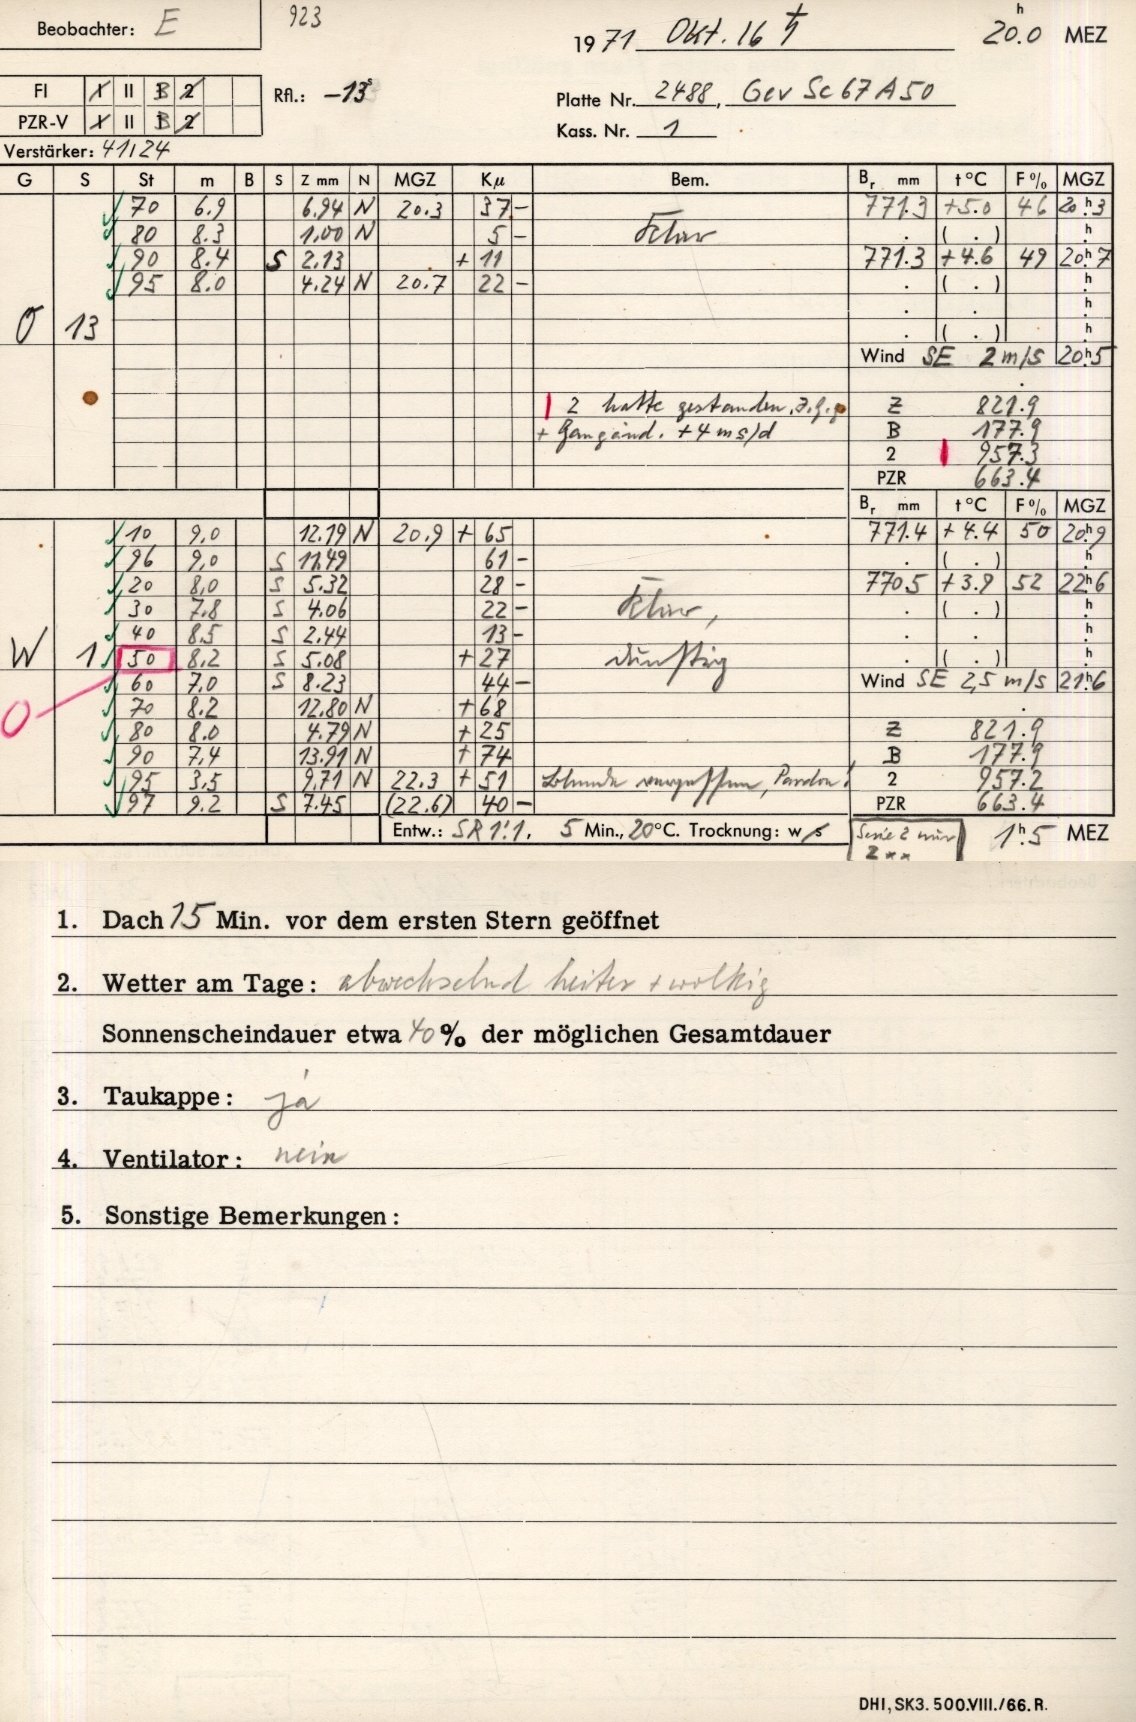 Beobachter: E 923
1971 Okt. 16 ♄ 20.0 h MEZ
FI I II B 2
Rfl.: -13s
Platte Nr. 2488, Gev Sc 67 A 50
PZR-V I II B 2
Kass. Nr. 1
Verstärker: 41/24
G S St m B S Z mm N MGZ Kμ Bem. Br mm t °C F % MGZ
70 6.9 6.94 N 20.3 37 - 771.3 +5.0 46 20h3
80 8.3 1.00 N 5 - klar . ( . ) h
90 8.4 S 2.13 + 11 771.3 +4.6 49 20h7
95 8.0 4.24 N 20.7 22 - . ( . ) h
. . h
O 13 . ( . ) h
Wind SE 2 m/s 20h5
2 hatte gestanden. Z 821.9
+ Gangänd. +4 ms/d B 177.9
2 957.3
PZR 663.4
Br mm t °C F % MGZ
10 9.0 12.19 N 20.9 + 65 771.4 +4.4 50 20h9
96 9.0 S 11.49 61 - . ( . ) h
20 8.0 S 5.32 28 - 770.5 +3.9 52 22h6
30 7.8 S 4.06 22 - klar, . ( . ) h
40 8.5 S 2.44 13 - . . h
W 1 50 8.2 S 5.08 + 27 dunstig . ( . ) h
60 7.0 S 8.23 44 - Wind SE 2,5 m/s 21h6
O 70 8.2 12.80 N + 68
80 8.0 4.79 N + 25 Z 821.9
90 7.4 13.91 N + 74 B 177.9
95 3.5 9.71 N 22.3 + 51 Blende vergessen, Pardon! 2 957.2
97 9.2 S 7.45 (22.6) 40 - PZR 663.4
Entw.: SR 1:1. 5 Min., 20°C. Trocknung: w/s Serie 2 nur 1h.5 MEZ
2 **
1. Dach 15 Min. vor dem ersten Stern geöffnet
2. Wetter am Tage: abwechselnd heiter + wolkig
Sonnenscheindauer etwa 40 % der möglichen Gesamtdauer
3. Taukappe: ja
4. Ventilator: nein
5. Sonstige Bemerkungen:
DHI, SK3. 500.VIII./66. R.